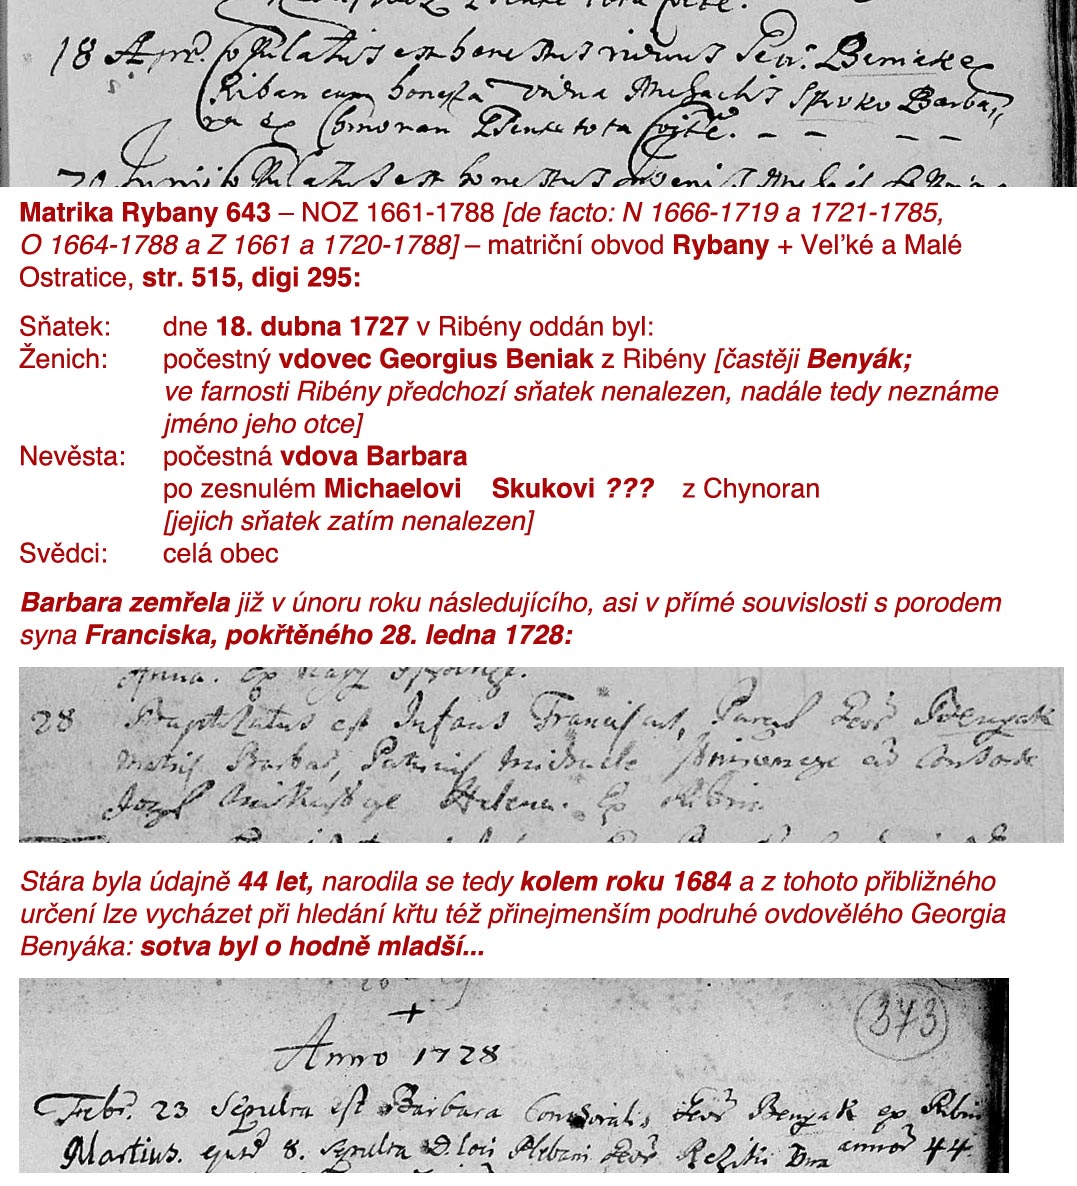 18 Apr. Copulatus est honestus viduus Geor. Beniak ex
Riban cum honesta Vidua Michaelis Barba„
ra ex Chinoran tota
Copulatus est honestus
Matrika Rybany 643 – NOZ 1661-1788 [de facto: N 1666-1719 a 1721-1785,
O 1664-1788 a Z 1661 a 1720-1788] – matriční obvod Rybany + Veľké a Malé
Ostratice, str. 515, digi 295:
Sňatek: dne 18. dubna 1727 v Ribény oddán byl:
Ženich: počestný vdovec Georgius Beniak z Ribény [častěji Benyák;
ve farnosti Ribény předchozí sňatek nenalezen, nadále tedy neznáme
jméno jeho otce]
Nevěsta: počestná vdova Barbara
po zesnulém Michaelovi Skukovi ??? z Chynoran
[jejich sňatek zatím nenalezen]
Svědci: celá obec
Barbara zemřela již v únoru roku následujícího, asi v přímé souvislosti s porodem
syna Franciska, pokřtěného 28. ledna 1728:
Anna. Ex
28 Baptizatus est Infans Franciscus, Benyak
Matris Barbar, Patrinis
Helena. Ex Ribin
Stára byla údajně 44 let, narodila se tedy kolem roku 1684 a z tohoto přibližného
určení lze vycházet při hledání křtu též přinejmenším podruhé ovdovělého Georgia
Benyáka: sotva byl o hodně mladší...
343
Anno 1728
Febr. 23 Sepulta est Barbara Consoralis Benyak ex Ribin
Martius. 8. sepulta D. loci Plebani annor 44